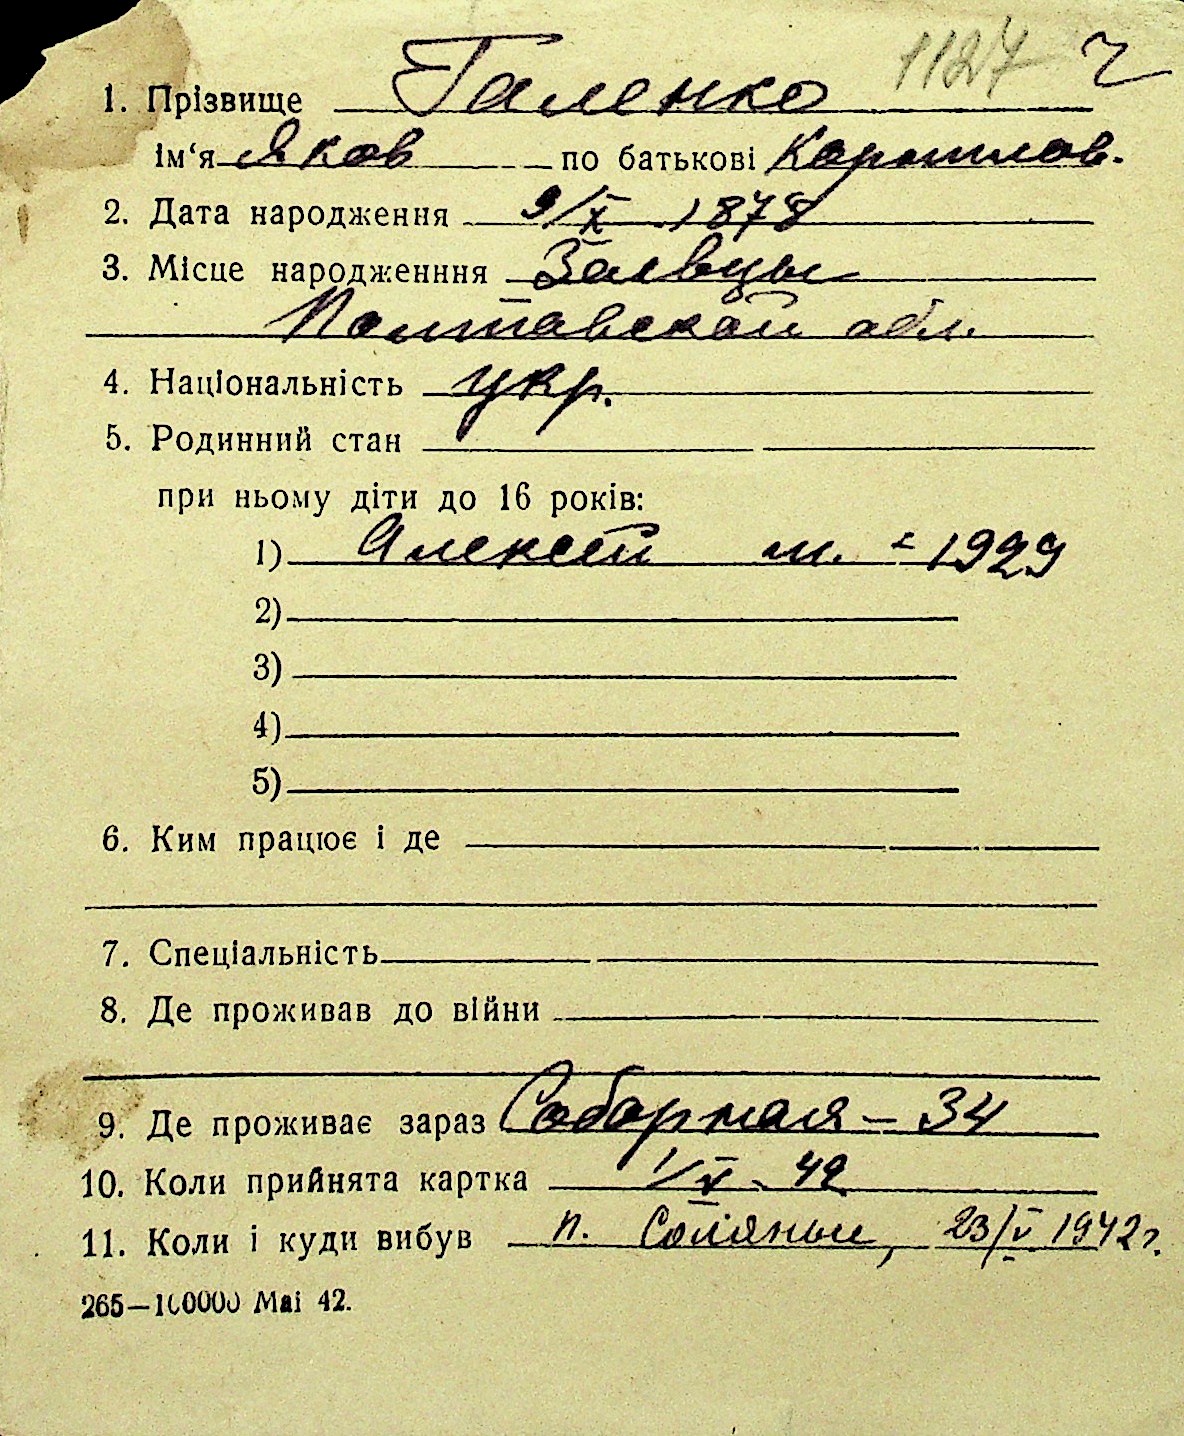 1127 ч
1. Прізвище Галенко
ім‘я Яков по батькові Корнилов.
2. Дата народження 9/X 1878
3. Місце народженння
Полтавской обл.
4. Національність укр.
5. Родинний стан
при ньому діти до 16 років:
1) Алексей м. - 1929
2)
3)
4)
5)
6. Ким працює і де
7. Спеціальність
8. Де проживав до війни
9. Де проживає зараз Соборная – 34
10. Коли прийнята картка 1/V. 42
11. Коли і куди вибув п. Соляные, 23/V 1942 г.
265—100000 Маі 42.